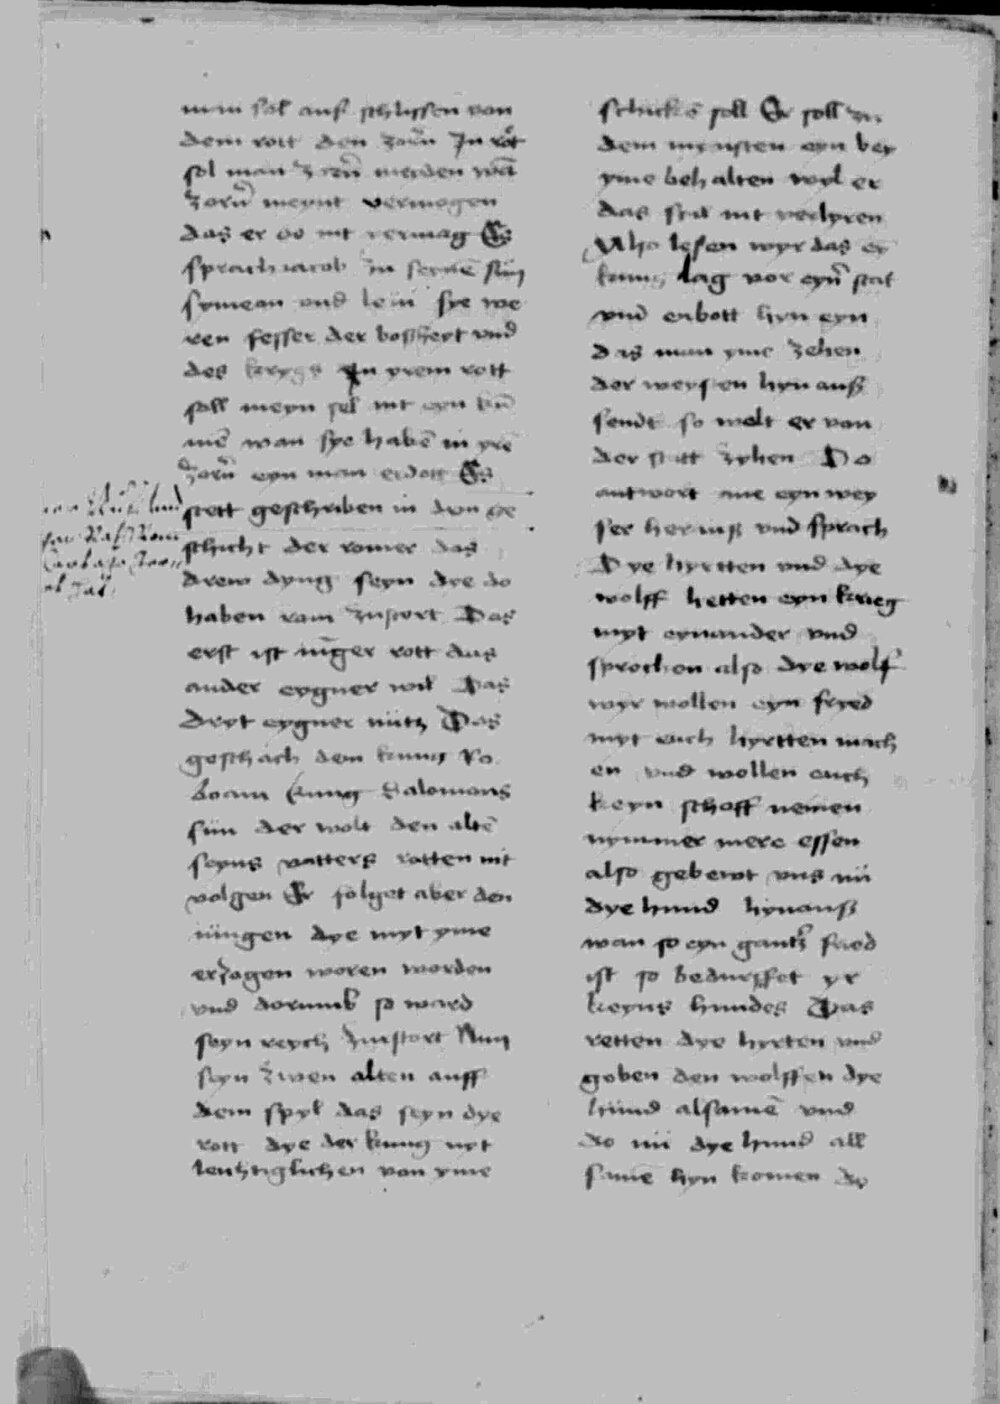 man sol auß schlissen von
dem rott den zorñ In rot
sol man zorñ meiden wã
zorñ meynt vermogen
das er do nit vermag Es
sprach iacob zu seynẽ sün
symeon vnd leui sye we
ren fesser der boßheyt vnd
des krygs In yrem rott
soll meyn sel nit eyn kũ
mẽ wan sye habẽ in yrẽ
zorñ eyn man erdott Es
stett geschriben in den ge
schicht der romer das
drew dyng seyn dye do
haben rom zustort Das
erst ist iũger rott das
ander eygner wil Das
dryt eygner nütz Das
geschach dem kunig Ro
boam kunig Salomons
sün der wolt den altẽ
seyns vatters rotten nit
volgen Er folget aber den
iüngen dye myt yme
erzogen woren worden
vnd dorumb so ward
seyn reych zustort Nun
seyn zwen alten auff
dem spyl das seyn dye
rott dye der kunig nyt
leuchtiglichen von yme
schickẽ soll Er soll zu
dem mynsten eyn bey
yme behalten wyl er
das spil nit verlyren
Also lesen wyr das eȳ
kunig lag vor eyñ stat
vnd enbott hyn eyn
das man yme zehen
der weysten hyn auß
sendt so wolt er von
der statt zyhen Do
antwort ane eyn wey
ser herauß vnd sprach
Dye hyrtten vnd dye
wolff hetten eyn krieg
myt eynander vnd
sprochen also dye wolf
wyr wollen eyn fryed
myt euch hyrtten mach
en vnd wollen euch
keyn schoff nemen
nymmer mere essen
also gebewt vns nü
dye hund hynauß
wan so eyn gantz fried
ist so bedurffet yr
keyns hundes Das
retten dye hyrten vnd
geben den wolffen dye
hünd alsamẽ vnd
do nü dye hund all
samẽ hyn komen do